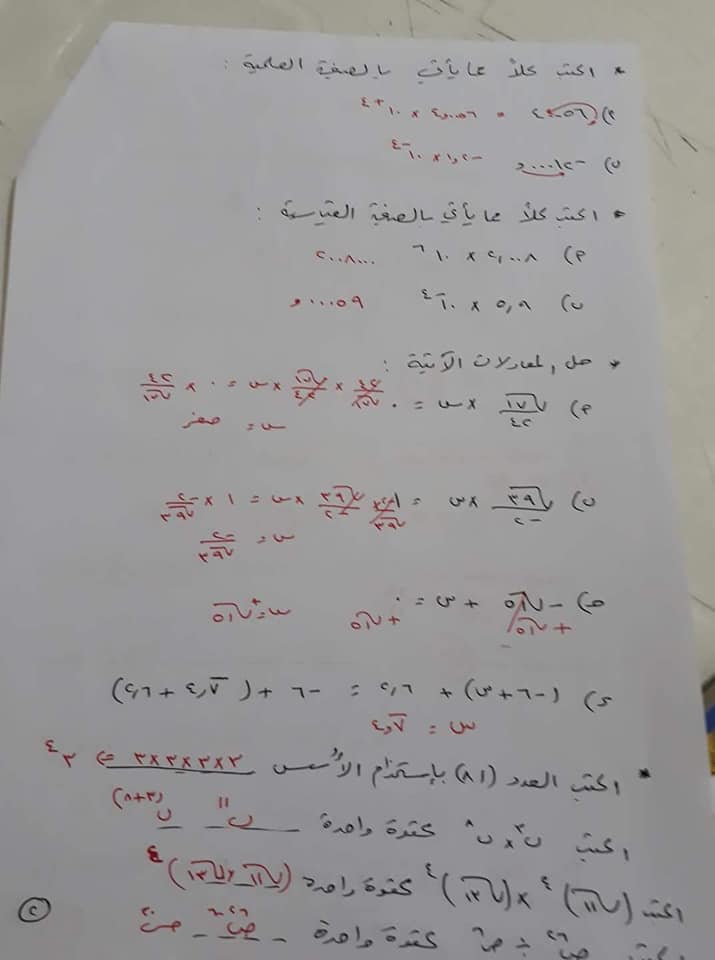 * اكتب كلاً مما يأتي بالصيغة العلمية :
أ) ٤٠٠٥٦ = ٤,٠٠٥٦ × ١٠^+٤
ب) -٠,٠٠٠١٢ -١,٢ × ١٠^-٤
* اكتب كلاً مما يأتي بالصيغة القياسية :
أ) ٢,٠٠٨ × ١٠^٦ ٢٠٠٨٠٠٠
ب) ٥,٩ × ١٠^-٤ ٠,٠٠٠٥٩
* حل المعادلات الآتية :
أ) √١٧/٤٢ × س = ٠ ٤٢/√١٧ × √١٧/٤٢ × س = ٠ × ٤٢/√١٧
س = صفر
ب) √٣٩/-٢ × س = ١ -٢/√٣٩ × √٣٩/-٢ × س = ١ × -٢/√٣٩
س = -٢/√٣٩
ج) -√١٥ + س = ٠
+√١٥ +√١٥ س = +√١٥
د) (-٦ + س) + ٢,٦ = -٦ + (٤,٧ + ٢,٦)
س = ٤,٧
* اكتب العدد (٨١) باستخدام الأسس ٣×٣×٣×٣ = ٣^٤
اكتب ن^٣ × ن^٨ كقوة واحدة ن^١١ ن^(٣+٨)
اكتب (√١١)^٤ × (√١٣)^٤ كقوة واحدة (√١١ × √١٣)^٤
كقوة واحدة
٢